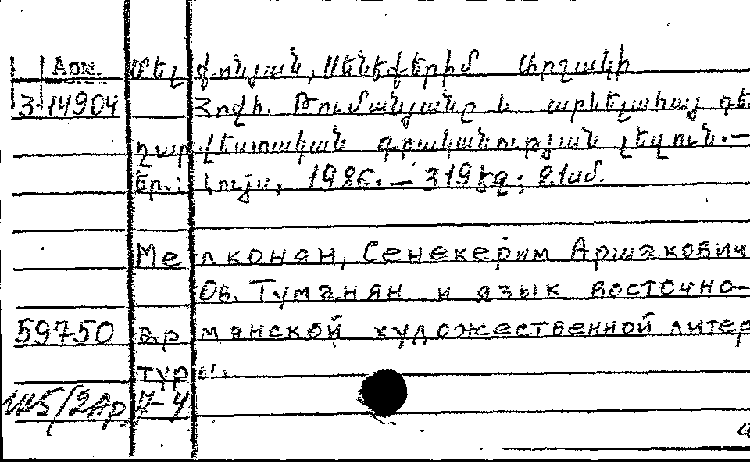 Арм. Մելքոնյան, Սենեքերիմ Արշակի
3-14904 Հովհ. Թումանյանը և արևելահայ գե
ղարվեստական գրականության լեզուն.—
Եր.: Լույս, 1986.— 319 էջ; 21սմ.
Мелконян, Сенекерим Аршакович
Ов. Туманян и язык восточно-
59750 армянской художественной литер
туры.
А-4